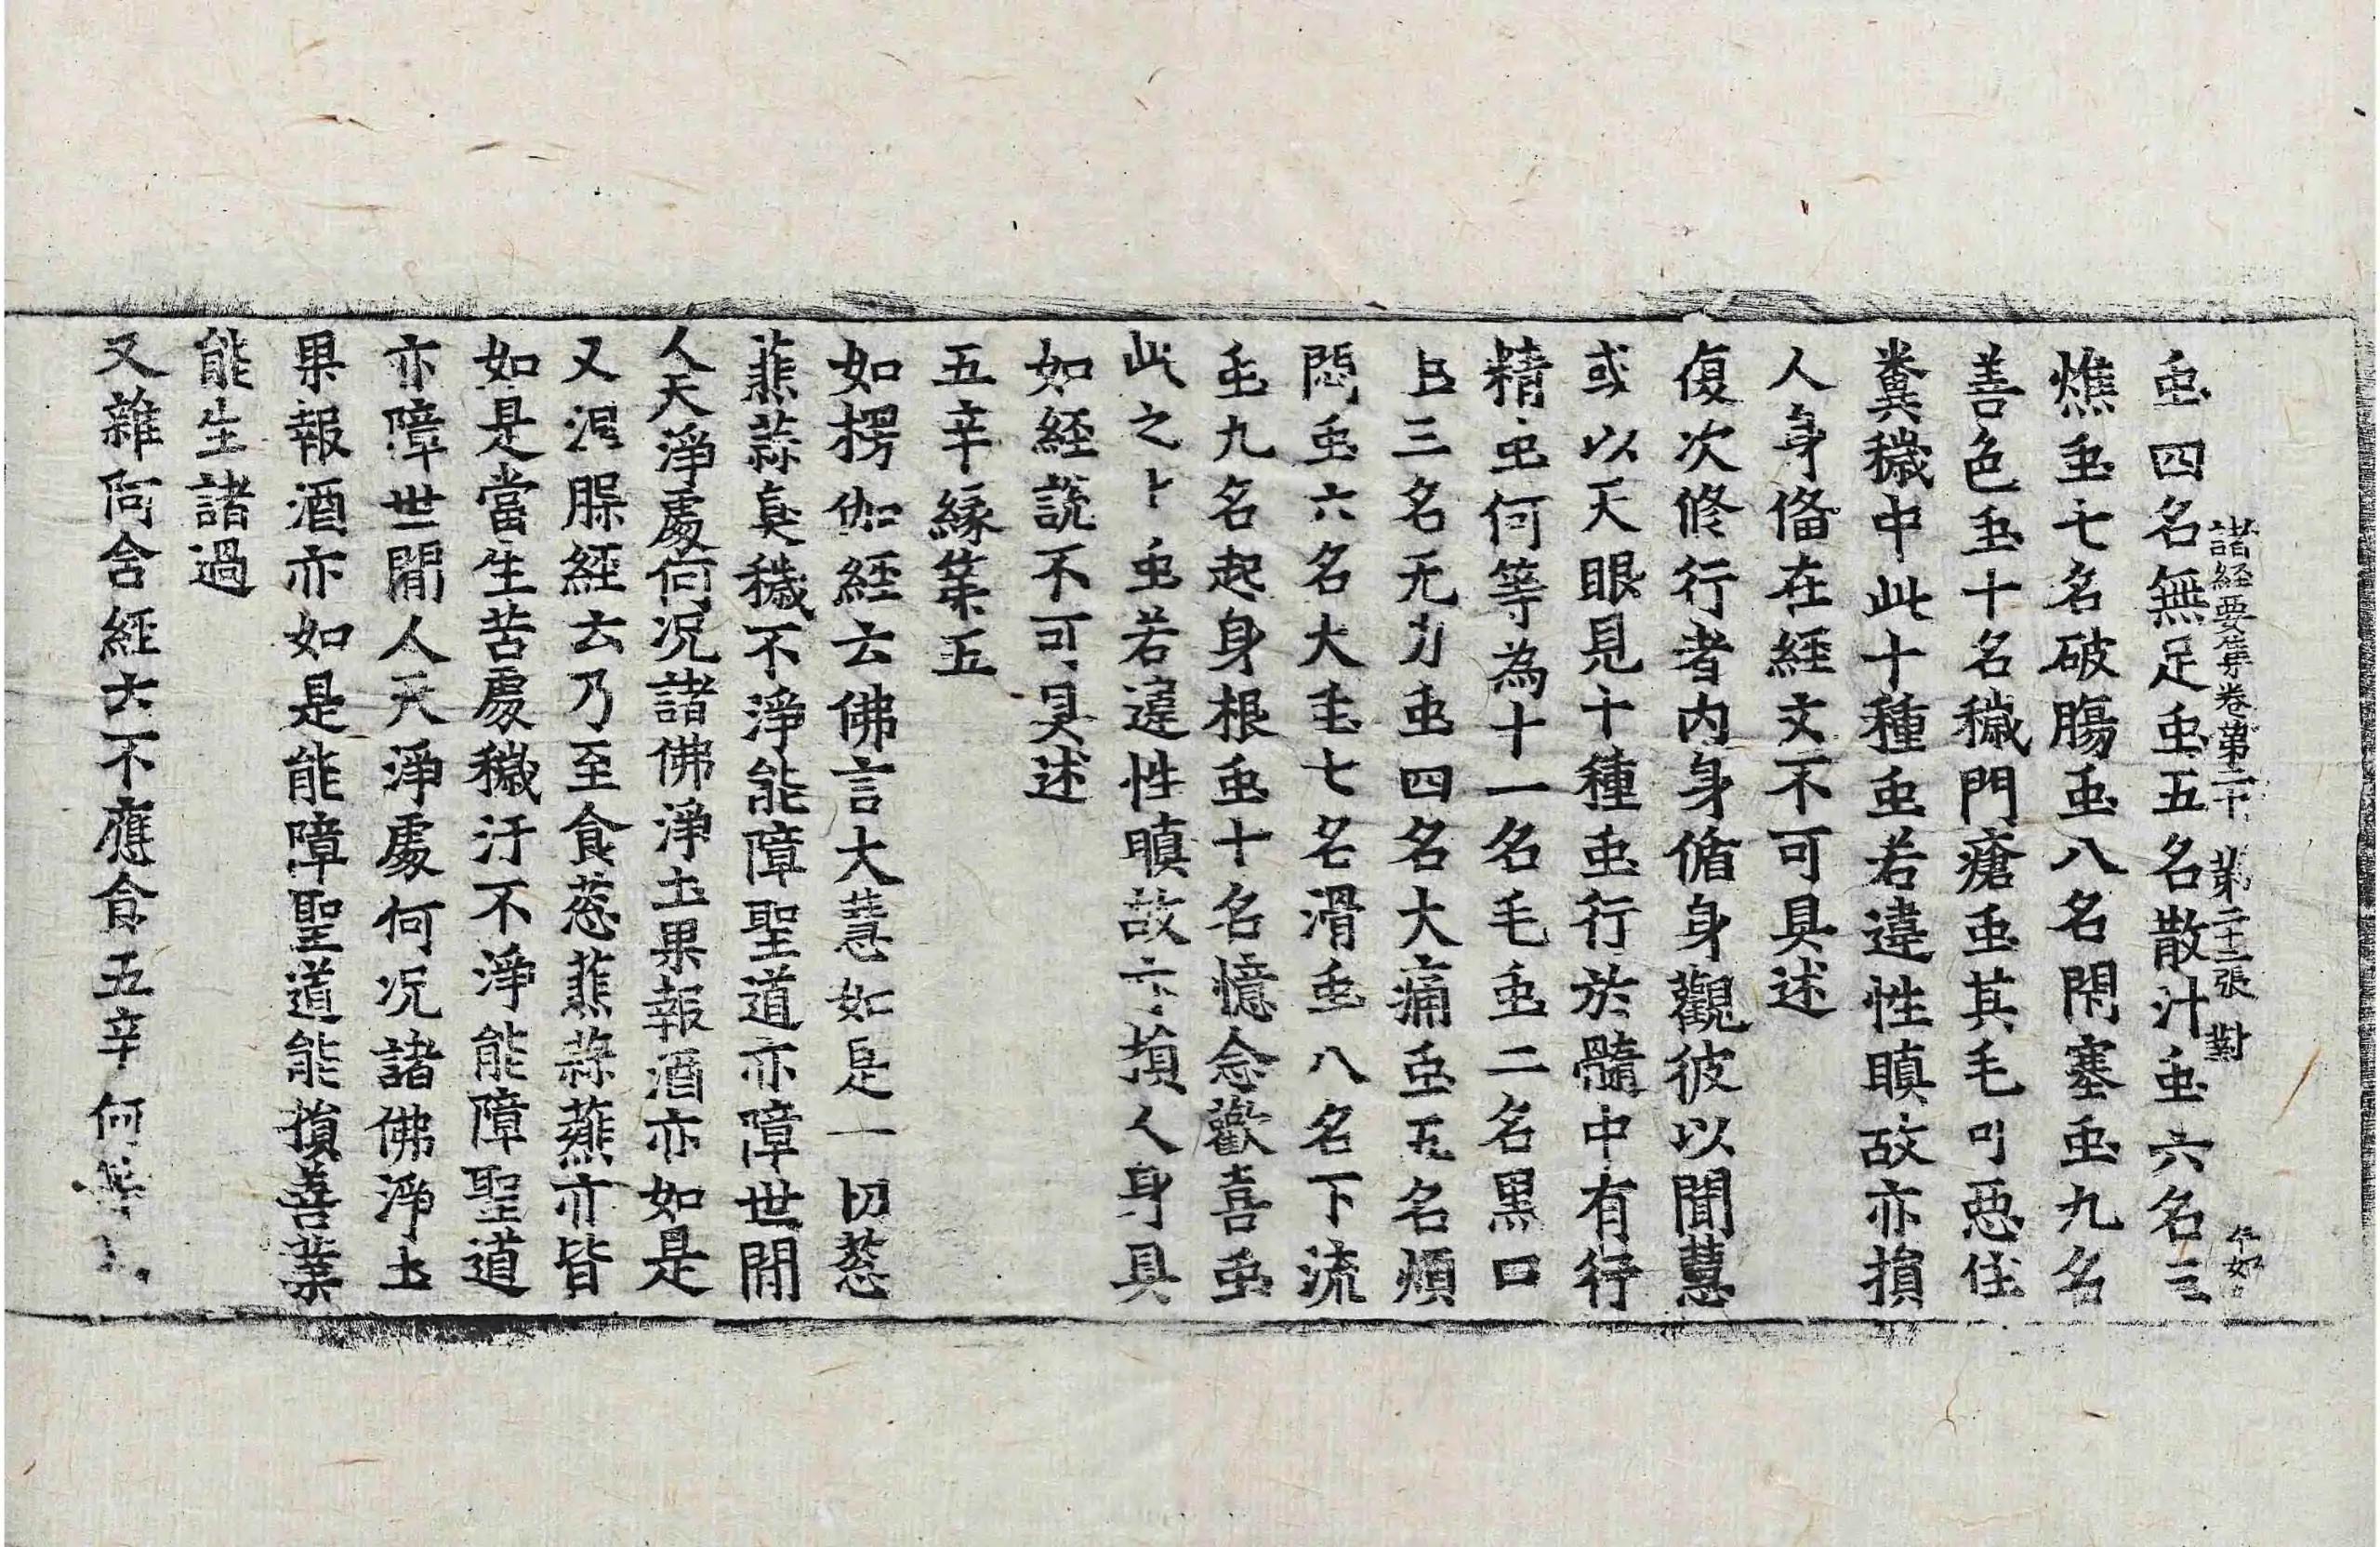 諸経要集卷第二十 第二十二張 對
虫四名無足虫五名散汁虫六名三
燋虫七名破腸虫八名閇塞虫九名
善色虫十名穢門瘡虫其毛可惡住
糞穢中此十種虫若違性瞋故亦損
人身俻在経文不可具述
復次修行者内身循身觀彼以聞慧
或以天眼見十種虫行於髓中有行
精虫何等為十一名毛虫二名黒口
虫三名无力虫四名大痛虫五名煩
悶虫六名大虫七名滑虫八名下流
虫九名起身根虫十名憶念歡喜虫
此之十虫若違性瞋故亦損人身具
如経說不可具述
五辛緣苐五
如楞伽経云佛言大慧如是一切葱
韮蒜臭穢不淨能障聖道亦障世閒
人天淨處何况諸佛淨土果報酒亦如是
又涅槃経云乃至食葱韮蒜薤亦皆
如是當生苦處穢汙不淨能障聖道
亦障世閒人天淨處何况諸佛淨土
果報酒亦如是能障聖道能損善業
能生諸過
又雜阿含経云不應食五辛何等